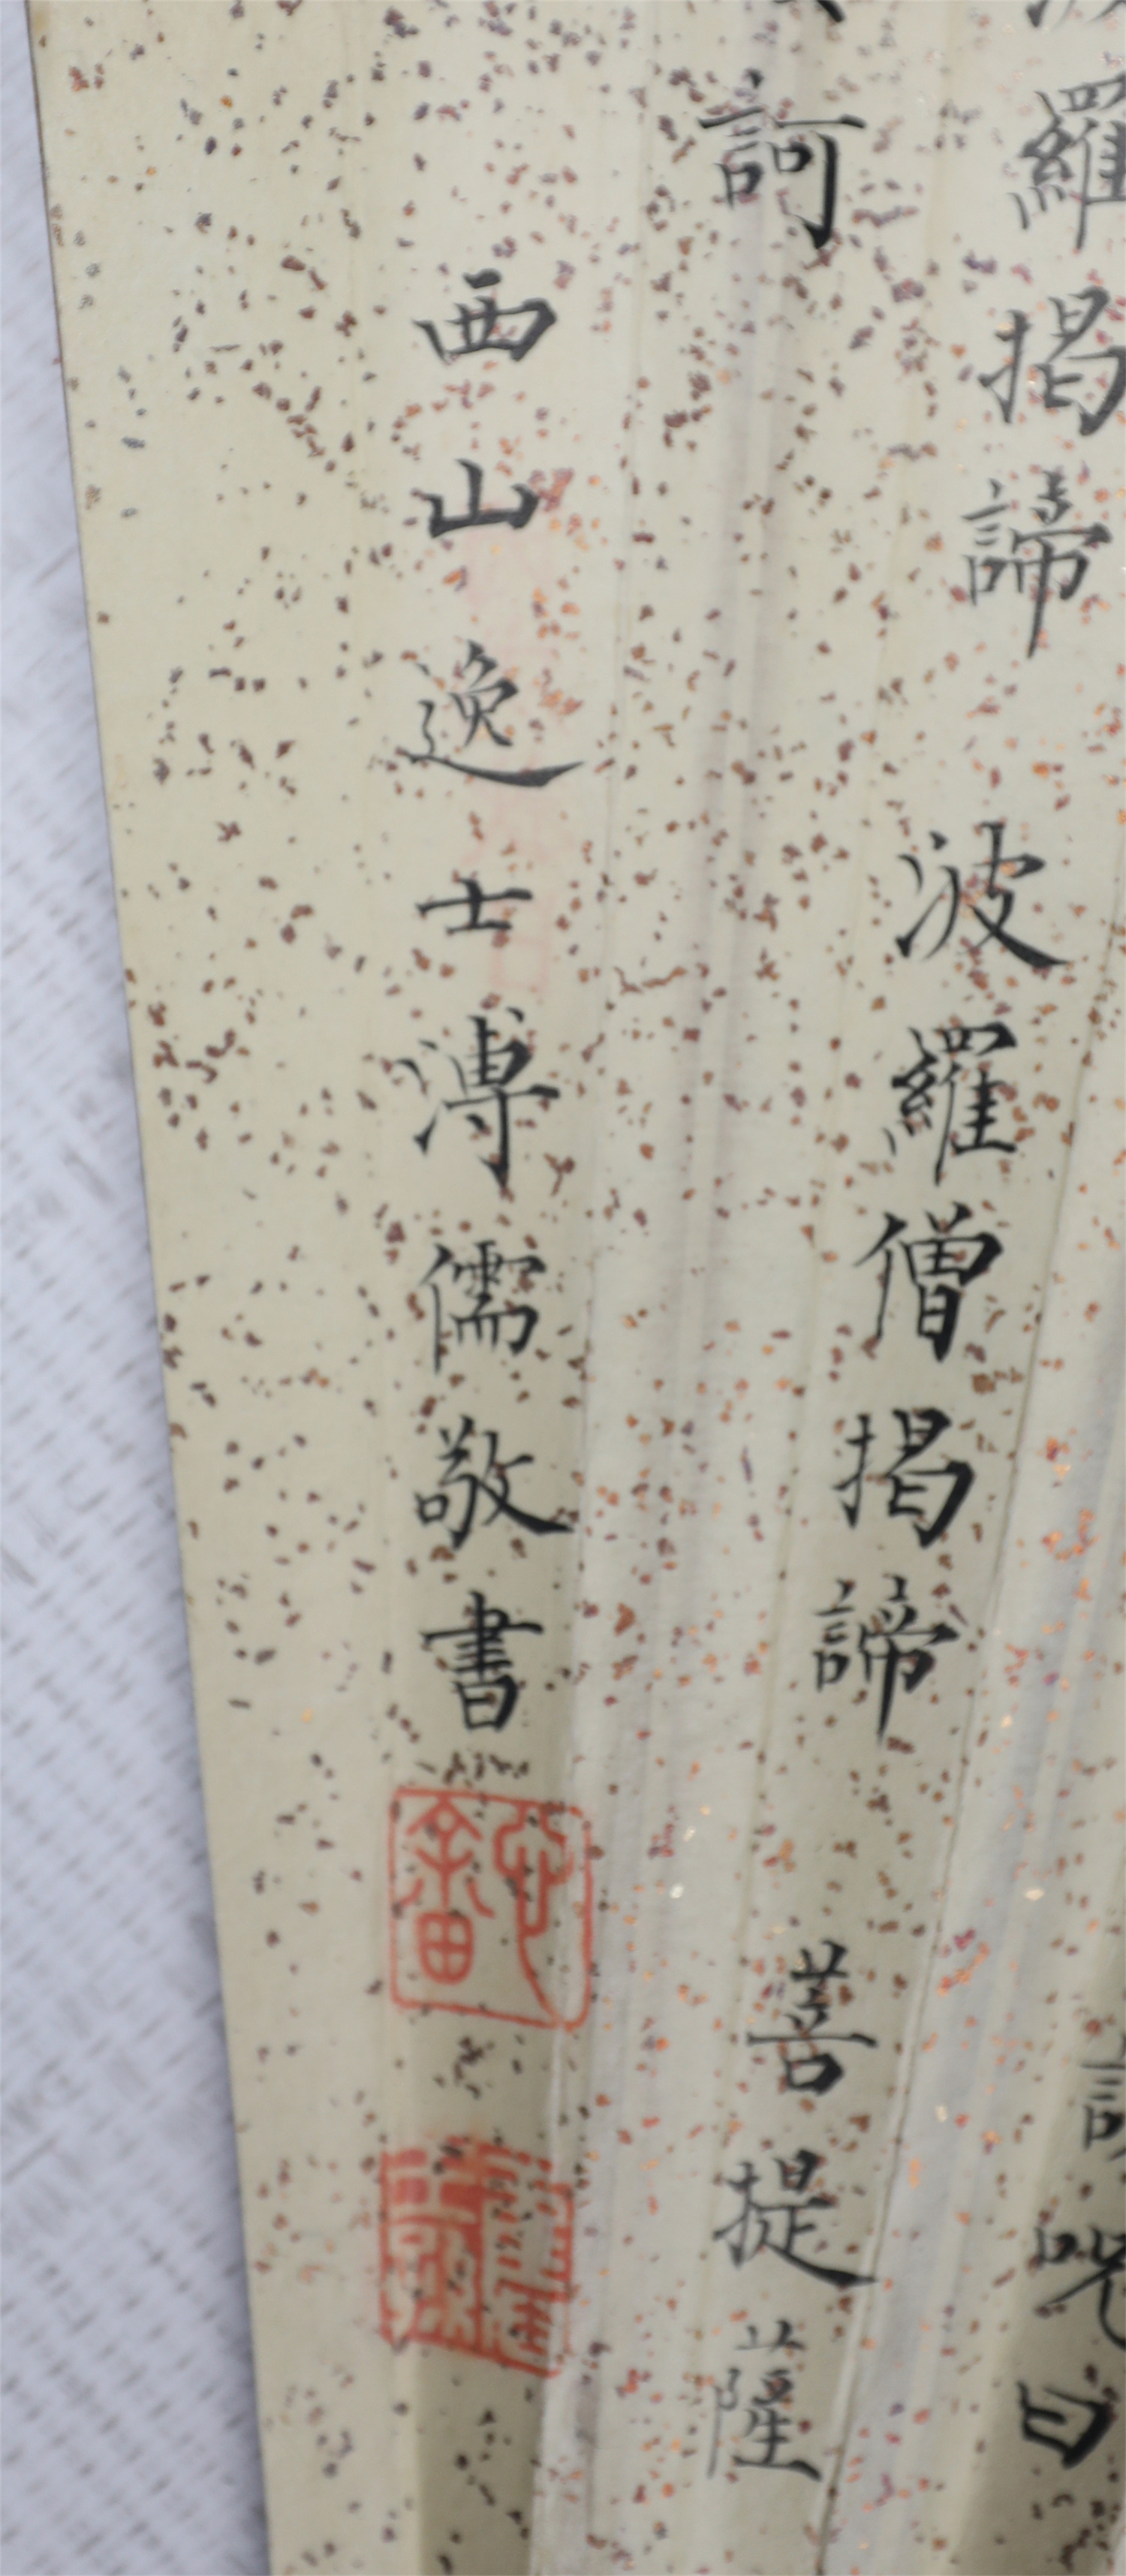 説呪曰
羅揭諦 波羅僧揭諦 菩提薩
訶
西山逸士溥儒敬書
心畬